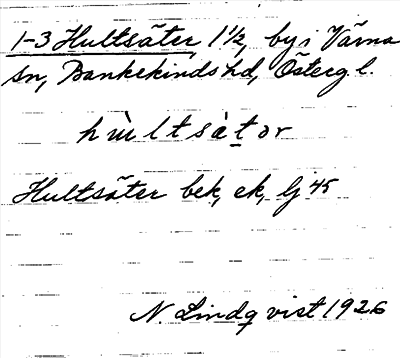 1-3 Hultsäter, 1 1/2, by i Värna
sn, Bankekinds hd, Österg l.
hùltsàtər
Hultsäter bek, ek, lj 45
N. Lindqvist 1926